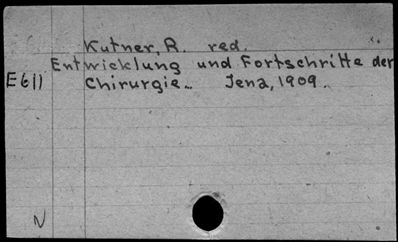 Kutner, R. red.
Entwicklung und Fortschritte der
E611 Chirurgie.. Jena, 1909.
N